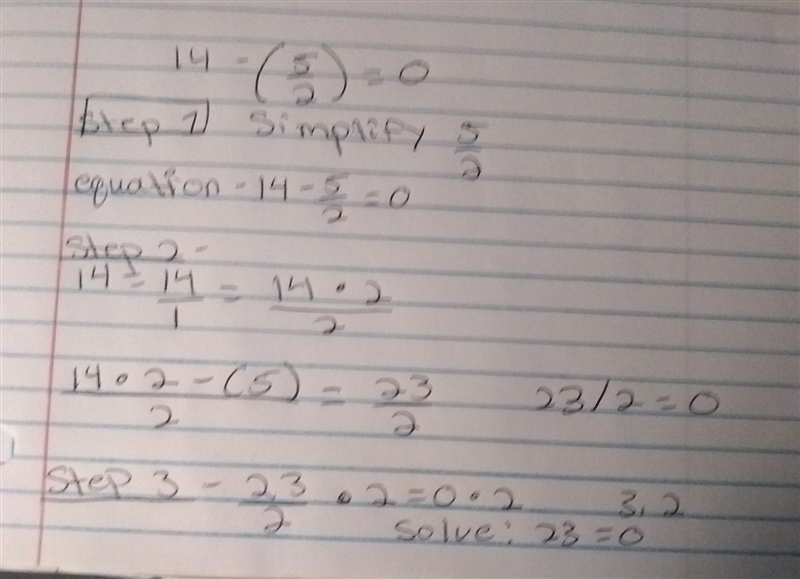 14 - (5/2) = 0
Step 1 Simplify 5/2
equation - 14 - 5/2 = 0
Step 2 -
14 = 14/1 = 14 • 2/2
14 • 2 - (5)/2 = 23/2 23/2 = 0
Step 3 - 23/2 • 2 = 0 • 2 3.2
Solve: 23 = 0